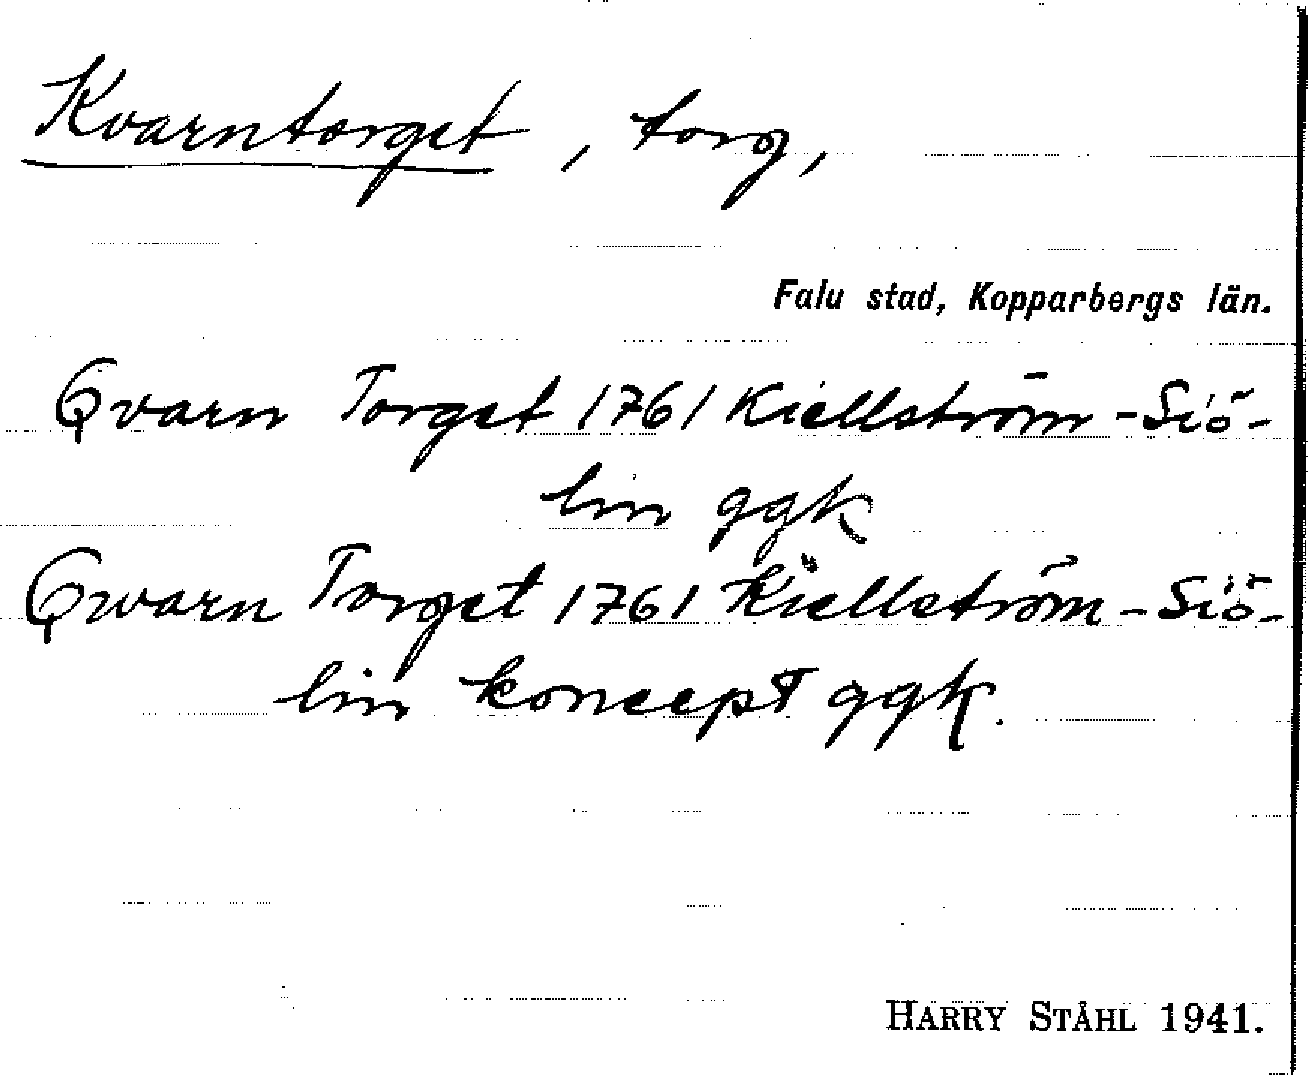 Kvarntorget, torg,
Falu stad, Kopparbergs län.
Qvarn Torget 1761 Kiellström-Siö-
lin ggk
Qwarn Torget 1761 Kiellström-Siö-
lin koncept ggk.
HARRY STÅHL 1941.